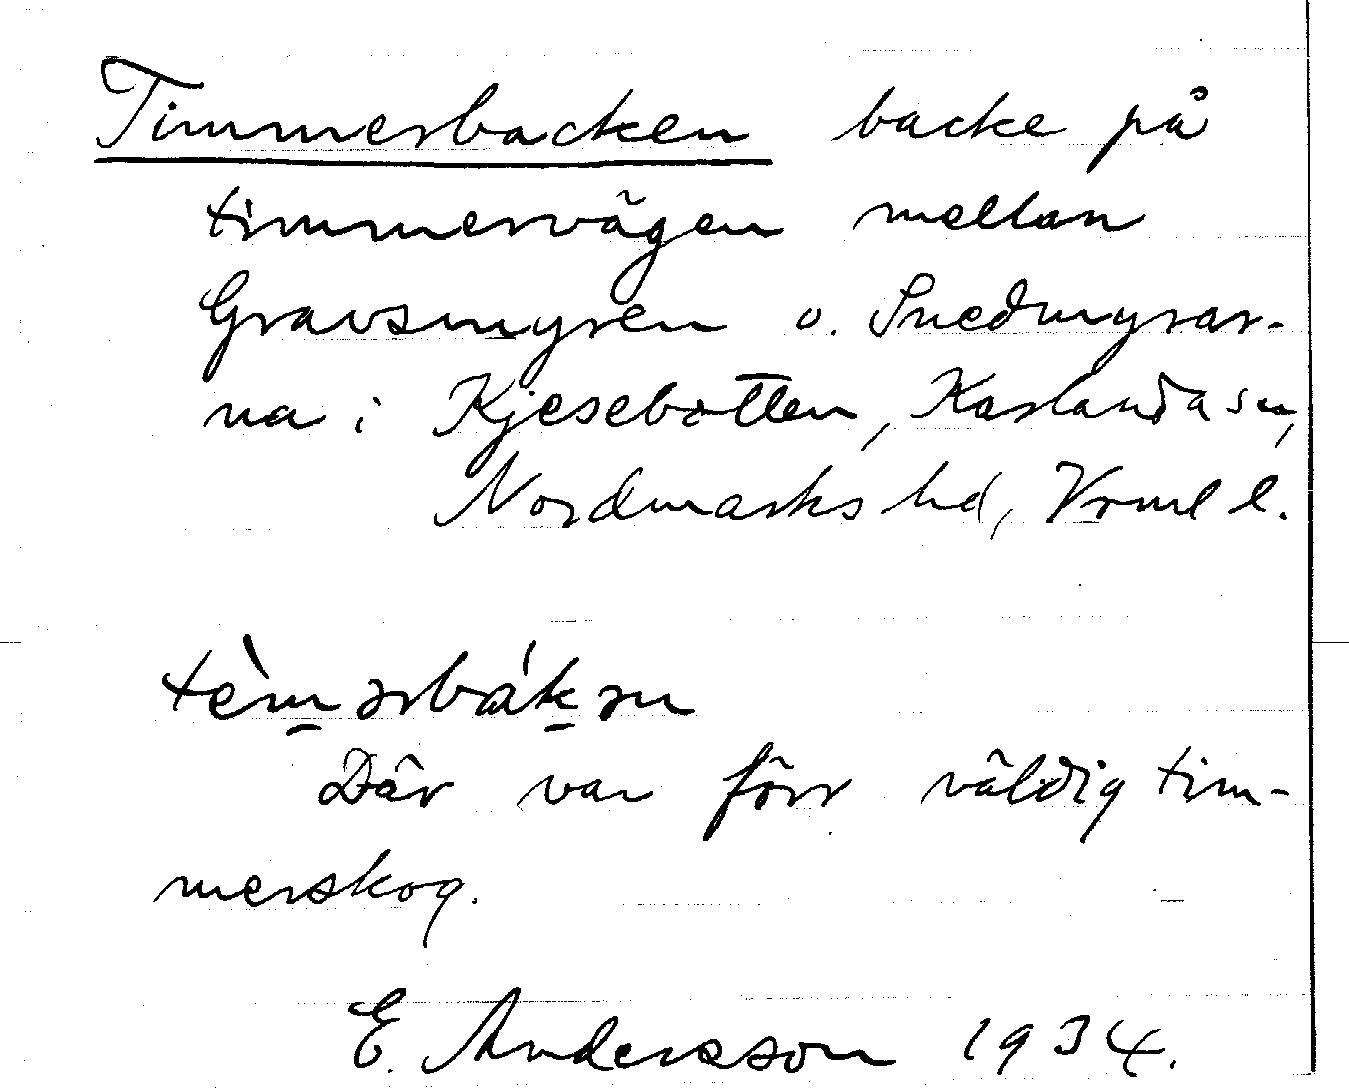 Timmerbacken backe på
timmervägen mellan
Gravsmyren o. Snedmyrar-
na i Kjesebotten, Karlanda sn,
Nordmarks hd, Vrml l.
tèm̱ərbák̠ən
Där var förr väldig tim-
merskog.
E. Andersson 1934.